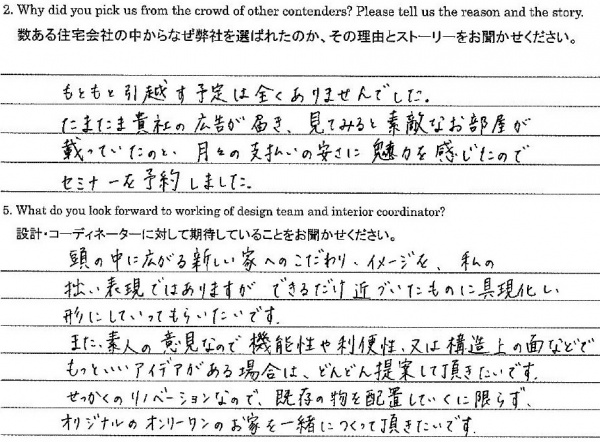 2. Why did you pick us from the crowd of other contenders? Please tell us the reason and the story.
数ある住宅会社の中からなぜ弊社を選ばれたのか、その理由とストーリーをお聞かせください。
もともと引越す予定は全くありませんでした。
たまたま貴社の広告が届き、見てみると素敵なお部屋が
載っていたのと、月々の支払いの安さに魅力を感じたので
セミナーを予約しました。
5. What do you look forward to working of design team and interior coordinator?
設計・コーディネーターに対して期待していることをお聞かせください。
頭の中に広がる新しい家へのこだわり、イメージを、私の
拙い表現ではありますが できるだけ近づいたものに具現化し
形にしていってもらいたいです。
また、素人の意見なので機能性や利便性、又は構造上の面などで
もっといいアイデアがある場合は、どんどん提案して頂きたいです。
せっかくのリノベーションなので、既存の物を配置していくに限らず、
オリジナルのオンリーワンのお家を一緒につくって頂きたいです。